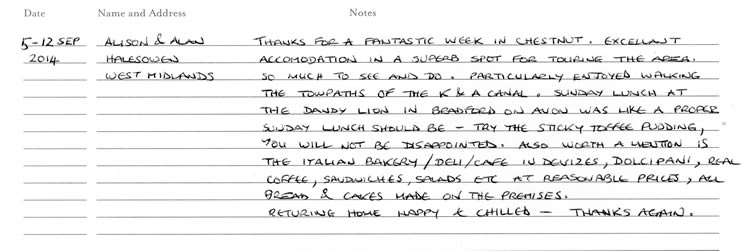 Date Name and Address Notes
5-12 SEP ALISON & ALAN THANKS FOR A FANTASTIC WEEK IN CHESTNUT. EXCELLANT
2014 HALESOWEN ACCOMODATION IN A SUPERB SPOT FOR TOURING THE AREA.
WEST MIDLANDS SO MUCH TO SEE AND DO. PARTICULARLY ENJOYED WALKING
THE TOWPATHS OF THE K & A CANAL. SUNDAY LUNCH AT
THE DANDY LION IN BRADFORD ON AVON WAS LIKE A PROPER
SUNDAY LUNCH SHOULD BE - TRY THE STICKY TOFFEE PUDDING,
YOU WILL NOT BE DISAPPOINTED. ALSO WORTH A MENTION IS
THE ITALIAN BAKERY/DELI/CAFE IN DEVIZES, DOLCIPANI, REAL
COFFEE, SANDWICHES, SALADS ETC AT REASONABLE PRICES, ALL
BREAD & CAKES MADE ON THE PREMISES.
RETURING HOME HAPPY & CHILLED - THANKS AGAIN.